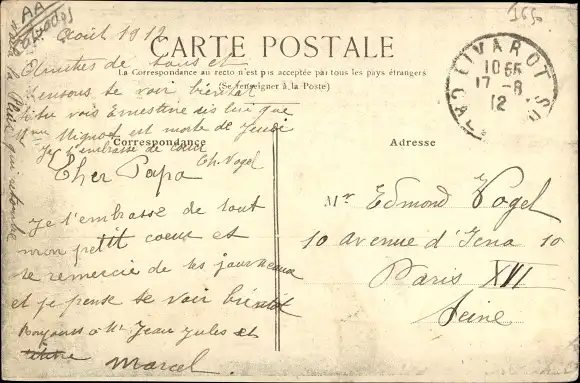 Août 1912
CARTE POSTALE
La Correspondance au recto n'est pas acceptée par tous les pays étrangers
(Se renseigner à la Poste)
Amitiés de tous et
pensons te voir bientôt
Si tu vois Ernestine dis lui que
Mme Mignot est morte de Jeudi
Je t'embrasse de cœur
Ch. Vogel
Correspondance
Cher Papa
Je t'embrasse de tout
mon petit coeur et
te remercie de tes journeaux
et je pense te voir bientôt
Bonjours à Mr Jean Jules et
Marcel.
Adresse
Mr Edmond Vogel
10 avenue d'Iena 10
Paris XVI
Seine
LIVAROT
10 55
17 - 8
12
CALVADOS